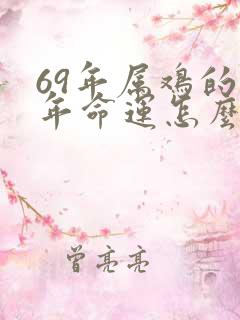 69年属鸡的
年命运怎麽
曾亮亮